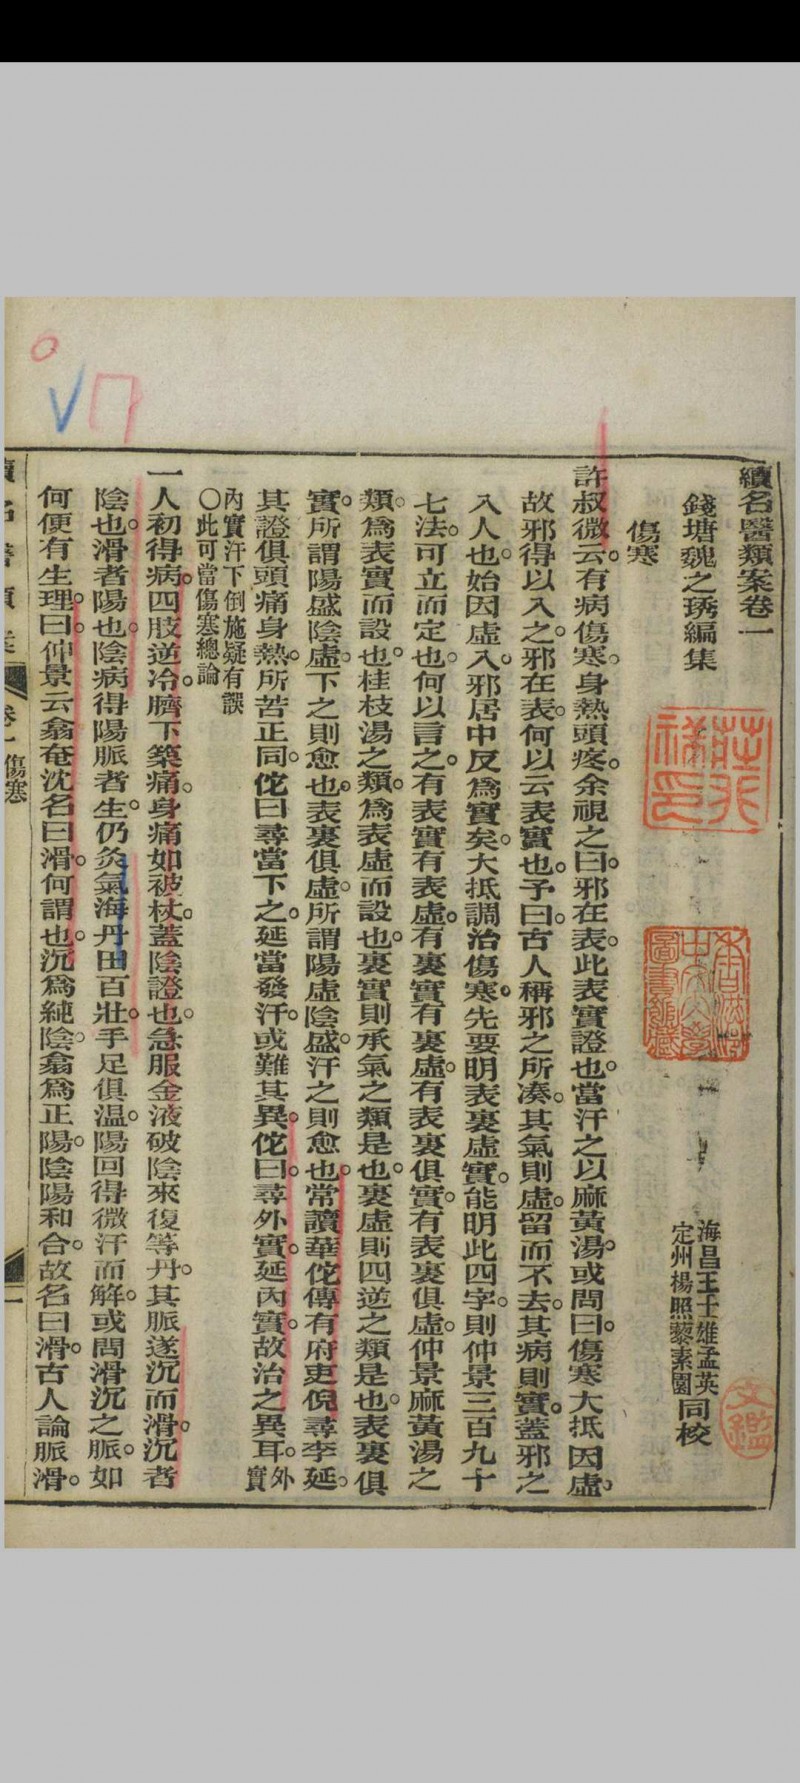 續名醫類案卷一
錢塘魏之琇編集
海昌王士雄孟英
定州楊照藜素園
同校
傷寒
許叔微云。有病傷寒。身熱頭疼。余視之曰。邪在表。此表實證也。當汗之以麻黃湯。或問曰。傷寒大抵因虛。
故邪得以入之。邪在表。何以云表實也。予曰。古人稱邪之所湊。其氣則虛。留而不去。其病則實。蓋邪之
入人也。始因虛入。邪居中反爲實矣。大抵調治傷寒。先要明表裏虛實。能明此四字。則仲景三百九十
七法。可立而定也。何以言之。有表實。有表虛。有裏實。有裏虛。有表裏俱實。有表裏俱虛。仲景麻黃湯之
類。爲表實而設也。桂枝湯之類。爲表虛而設也。裏實則承氣之類是也。裏虛則四逆之類是也。表裏俱
實。所謂陽盛陰虛。下之則愈也。表裏俱虛。所謂陽虛陰盛。汗之則愈也。常讀華佗傳。有府吏倪尋李延。
其證俱頭痛身熱。所苦正同。佗曰。尋當下之。延當發汗。或難其異。佗曰。尋外實。延內實。故治之異耳。外實
內實汗下倒施疑有誤
〇此可當傷寒總論
一人初得病。四肢逆冷。臍下築痛。身痛如被杖。蓋陰證也。急服金液破陰來復等丹。其脈遂沉而滑。沉者
陰也。滑者陽也。陰病得陽脈者生。仍灸氣海丹田百壯。手足俱溫。陽回得微汗而解。或問滑沉之脈。如
何便有生理。曰。仲景云翕奄沈名曰滑。何謂也。沉爲純陰。翕爲正陽。陰陽和合。故名曰滑。古人論脈滑。
卷一 傷寒
一
文鑑